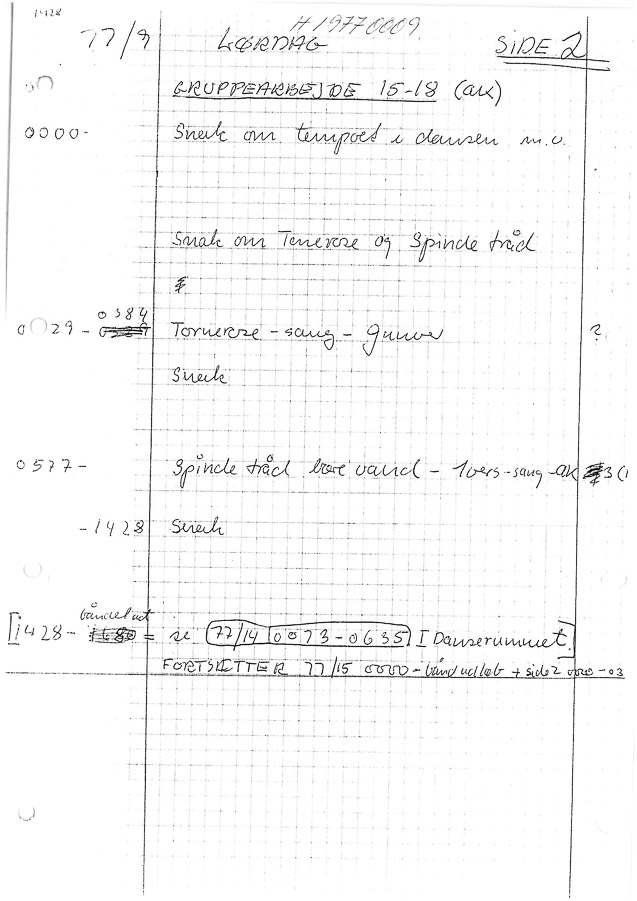 1428
H19770009
77/9 LØRDAG SIDE 2
GRUPPEARBEJDE 15-18 (AK)
0000- Snak om tempoet i dansen m.v.
Snak om Tornerose og Spinde tråd
0384
0029 - Tornerose - sang - Gunver ?
Snak
0577- Spinde tråd bære vand - 1 vers - sang - AK 3 (1
-1428 Snak
båndet ud
[1428- = se 77/14 0073-0635 I Danserummet.]
FORTSÆTTER 77/15 0000 - bånd udløb + side 2 0000 - 03